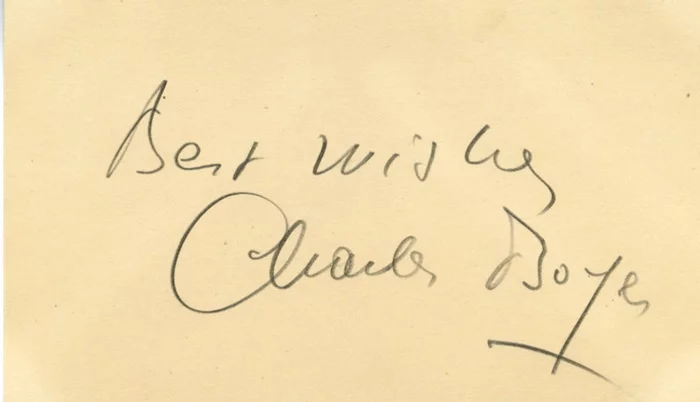 Best wishes
Charles Boyer